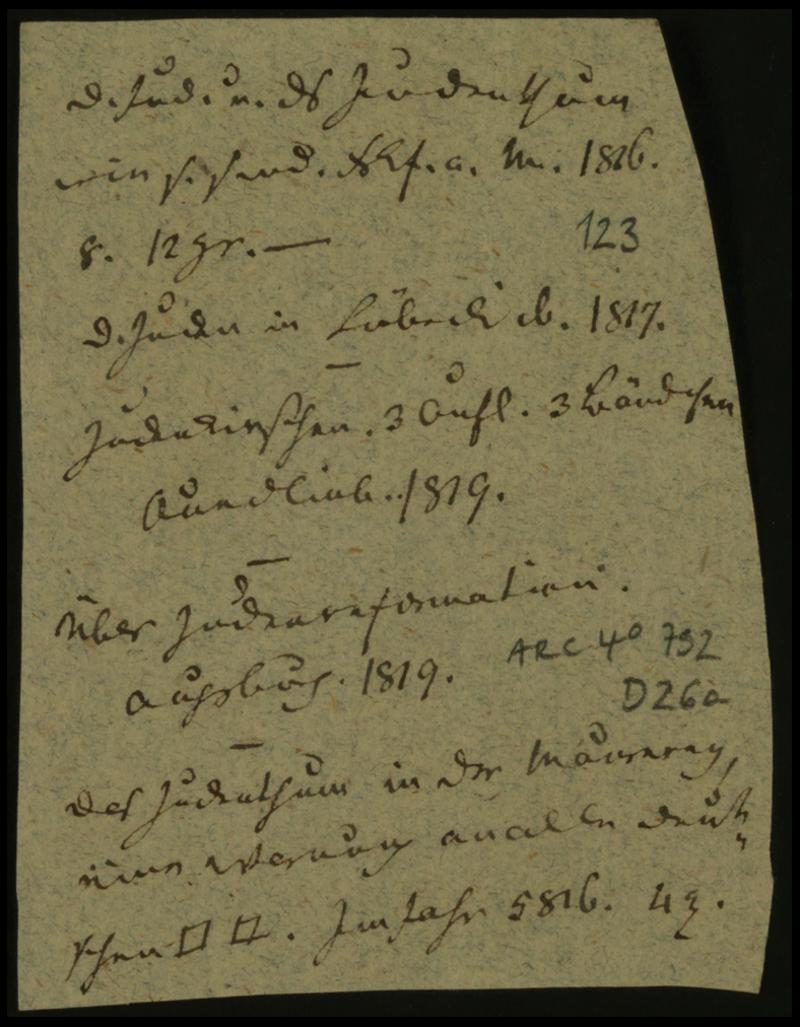 d. Jud. u. ds Judenthum
wie s. sind. Fkf. a. M. 1816.
8. 12 gr. —
123
d. Juden in Lübeck ib. 1817.
—
Judenkirschen. 3 Aufl. 3 Bändchen
Quedlinb. 1819.
—
Über Judenreformation.
Augsburg. 1819.
ARC 4° 792
D26a
—
das Judenthum in der Maurerey,
eine Warnung an alle deut=
schen □ □. Im Jahr 5816. 4